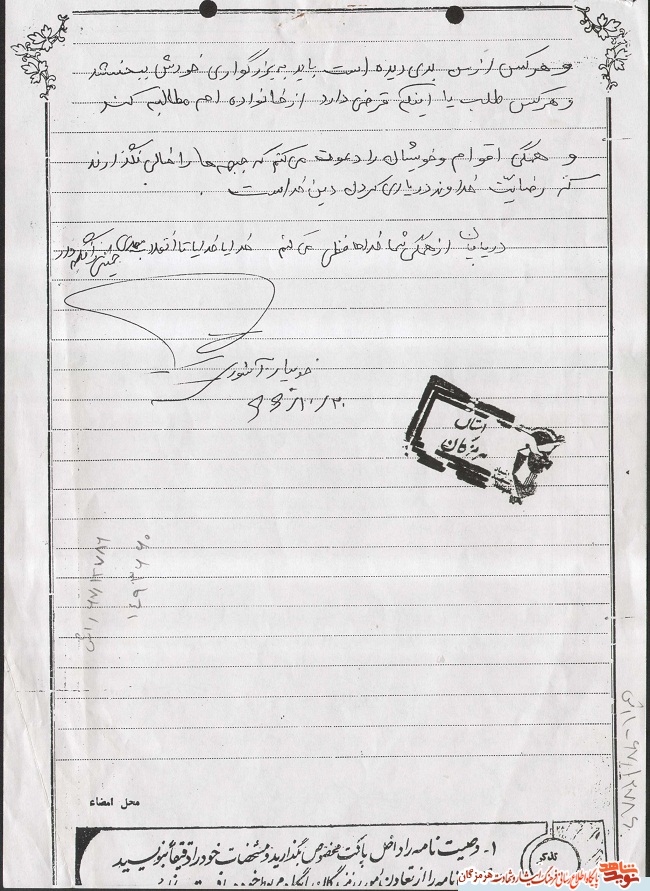 و هرکس از من بدی دیده است باید به بزرگواری خودش ببخشد
و هرکس طلب یا اینکه قرضی دارد از خانواده ام مطالبه کند
و همگی اقوام و خویشان را دعوت می کنم که جبهه ها را خالی نگذارند
که رضایت خداوند در یاری کردن دین خداست .
در پایان از همگی شما خداحافظی می کنم خدایا خدایا تا انقلاب مهدی
آشوری
۶۶/۱۰/۲۰
استان
هرمزگان
محل امضاء
تذکر
۱- وصیت نامه را داخل پاکت مخصوص بگذارید و مشخصات خود را دقیقاً بنویسید
نوید شاهد
پایگاه اطلاع رسانی فرهنگ ایثار و شهادت هرمزگان